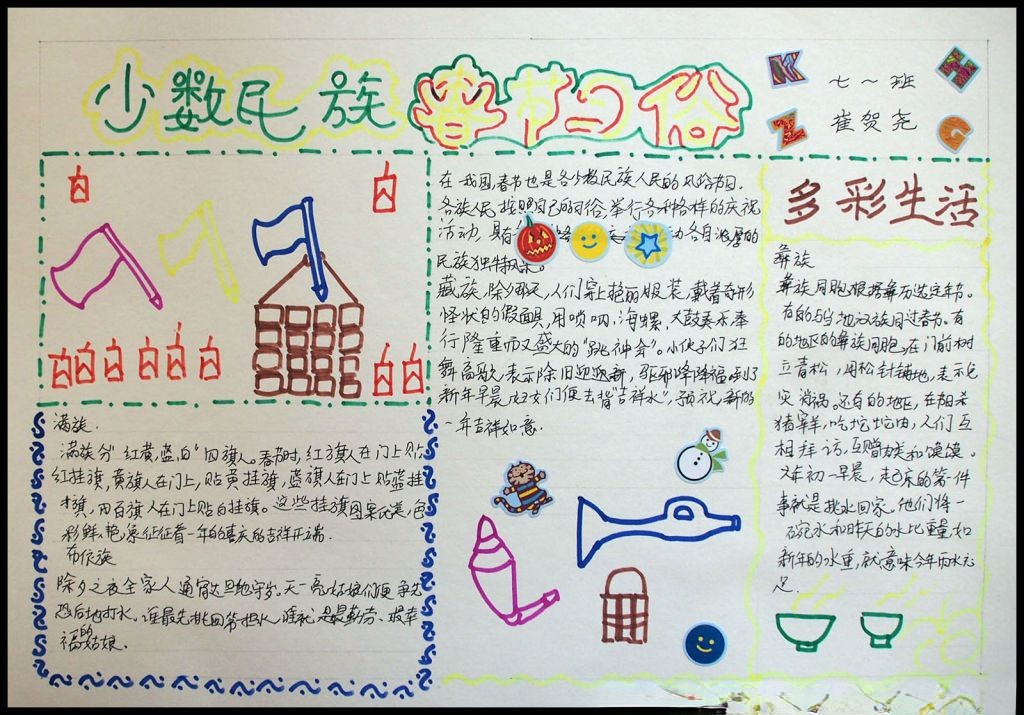 少数民族春节习俗
七一班
崔贺尧
K
H
Z
G
在我国春节也是各少数民族人民的风俗节日.
各族人民按照自己的习俗,举行各种各样的庆祝
活动,具有各自浓厚的
民族独特风采。
藏族,除夕那天,人们穿上艳丽服装,戴着奇形
怪状的假面具,用唢呐,海螺,大鼓奏乐奉
行隆重而又盛大的"跳神会"。小伙子们狂
舞高歌,表示除旧迎新,驱邪降福.到了
新年早晨,妇女们便去背"吉祥水",预祝,新的
一年吉祥如意.
满族.
满族分"红黄,蓝,白"四旗人。春节时,红旗人在门上贴
红挂旗,黄旗人在门上,贴黄挂旗,蓝旗人在门上贴蓝挂
旗,而白旗人在门上贴白挂旗。这些挂旗图案优美,色
彩鲜艳,象征征着一年的喜庆的吉祥开端.
布依族
除夕之夜全家人通宵达旦地守岁。天一亮,姑娘们便争先
恐后地打水。谁最先挑回第一担水,谁就是最勤劳、最幸
福的姑娘.
多彩生活
彝族
彝族同胞根据彝历选定年节。
有的与当地汉族同过春节。有
的地区的彝族同胞,在门前树
立青松,用松针铺地,表示免
灾消祸。还有的地区,在相杀
猪宰羊,吃坨坨肉,人们互
相拜访,互赠肉类和馍馍。
大年初一早晨,起床的第一件
事就是挑水回家。他们将一
碗水和昨天的水比重量,如
新年的水重,就意味今年雨水充
足.